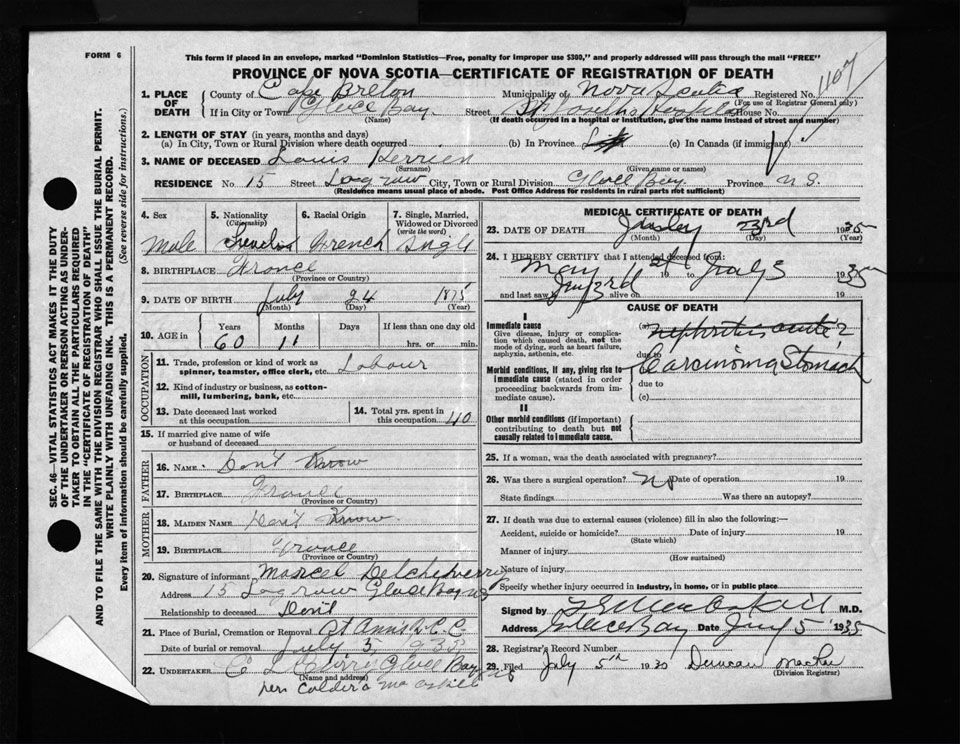 FORM 6
This form if placed in an envelope, marked "Dominion Statistics—Free, penalty for improper use $300," and properly addressed will pass through the mail "FREE"
PROVINCE OF NOVA SCOTIA—CERTIFICATE OF REGISTRATION OF DEATH
1. PLACE OF DEATH
County of Cape Breton Municipality of Nova Scotia Registered No. 1167
(For use of Registrar General only)
If in City or Town Glace Bay Street St Josephs Hospital House No.
(Name) (If death occurred in a hospital or institution, give the name instead of street and number)
2. LENGTH OF STAY (in years, months and days)
(a) In City, Town or Rural Division where death occurred (b) In Province (c) In Canada (if immigrant)
3. NAME OF DECEASED Louis Perrien
(Surname) (Given name or names)
RESIDENCE No. 15 Street Logrow City, Town or Rural Division Glace Bay Province N S.
(Residence means usual place of abode. Post Office Address for residents in rural parts not sufficient)
4. Sex 5. Nationality (Citizenship) 6. Racial Origin 7. Single, Married, Widowed or Divorced (write the word)
Male French Single
8. BIRTHPLACE France
(Province or Country)
9. DATE OF BIRTH July 24 1875
(Month) (Day) (Year)
10. AGE in Years Months Days If less than one day old
60 11 hrs. or min.
OCCUPATION
11. Trade, profession or kind of work as spinner, teamster, office clerk, etc. Labour
12. Kind of industry or business, as cotton-mill, lumbering, bank, etc.
13. Date deceased last worked at this occupation
14. Total yrs. spent in this occupation 40
15. If married give name of wife or husband of deceased
FATHER
16. NAME Don't Know
17. BIRTHPLACE France
(Province or Country)
MOTHER
18. MAIDEN NAME Don't Know
19. BIRTHPLACE France
(Province or Country)
20. Signature of informant Marcel Delcheverry
Address 15 Logrow Glace Bay NS
Relationship to deceased
21. Place of Burial, Cremation or Removal St Anns R.C.C.
Date of burial or removal July 5 1935
22. UNDERTAKER Glace Bay NS
(Name and address)
per
MEDICAL CERTIFICATE OF DEATH
23. DATE OF DEATH 1935
(Month) (Day) (Year)
24. I HEREBY CERTIFY that I attended deceased from:
May 19 to 1935
and last saw h alive on 19
CAUSE OF DEATH
I
Immediate cause
Give disease, injury or complication which caused death, not the mode of dying, such as heart failure, asphyxia, asthenia, etc.
(a) Nephritis acute
due to
Morbid conditions, if any, giving rise to immediate cause (stated in order proceeding backwards from immediate cause).
Carcinoma Stomach
due to
(c)
II
Other morbid conditions (if important) contributing to death but not causally related to immediate cause.
25. If a woman, was the death associated with pregnancy?
26. Was there a surgical operation? No Date of operation 19
State findings Was there an autopsy?
27. If death was due to external causes (violence) fill in also the following:—
Accident, suicide or homicide? Date of injury 19
(State which)
Manner of injury
(How sustained)
Nature of injury
Specify whether injury occurred in industry, in home, or in public place
Signed by M.D.
Address Glace Bay Date 5 1935
28. Registrar's Record Number
29. Filed July 5th 19 Duncan
(Division Registrar)
SEC. 46—VITAL STATISTICS ACT MAKES IT THE DUTY OF THE UNDERTAKER OR PERSON ACTING AS UNDERTAKER TO OBTAIN ALL THE PARTICULARS REQUIRED IN THE "CERTIFICATE OF REGISTRATION OF DEATH" AND TO FILE THE SAME WITH THE DIVISION REGISTRAR WHO SHALL ISSUE THE BURIAL PERMIT.
WRITE PLAINLY WITH UNFADING INK. THIS IS A PERMANENT RECORD.
Every item of information should be carefully supplied. (See reverse side for instructions.)